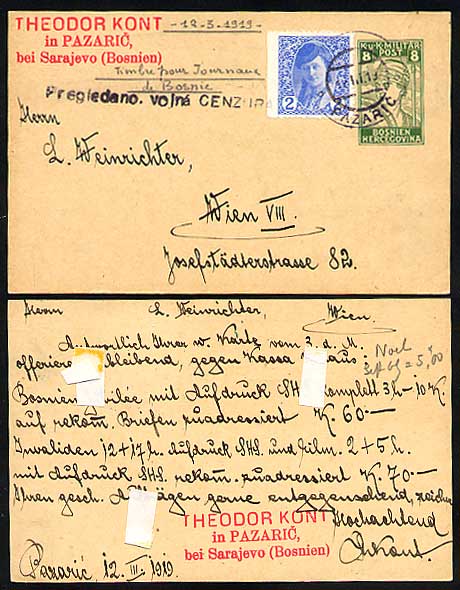 THEODOR KONT
in PAZARIČ,
bei Sarajevo (Bosnien)
-12-3-1919-
Timbre pour Journaux
de Bosnie
Pregledano. vojna CENZURA
2
K.u.K. MILITÄR
POST
8 8
BOSNIEN
HERCEGOVINA
PAZARIĆ
Herrn
L. Weinrichter,
Wien VIII.
Josefstädterstrasse 82.
Herrn L. Weinrichter, Wien.
Ihrer w. Karte vom 3. d. M.
bleibend, gegen Kassa
Noel
5,00
Bosnien mit Aufdruck SHS komplett 3h - 10 K.
auf rekom. Briefen zuadressiert K. 60.—
Invaliden 12 + 17 h. Aufdruck SHS. und Film. 2 + 5 h.
mit Aufdruck SHS. rekom. zuadressiert K. 70.—
Ihren gesch. gerne entgegensehend, zeichne
Hochachtend
THEODOR KONT
in PAZARIČ,
bei Sarajevo (Bosnien)
ThKont.
Pazarić, 12. III. 1919.